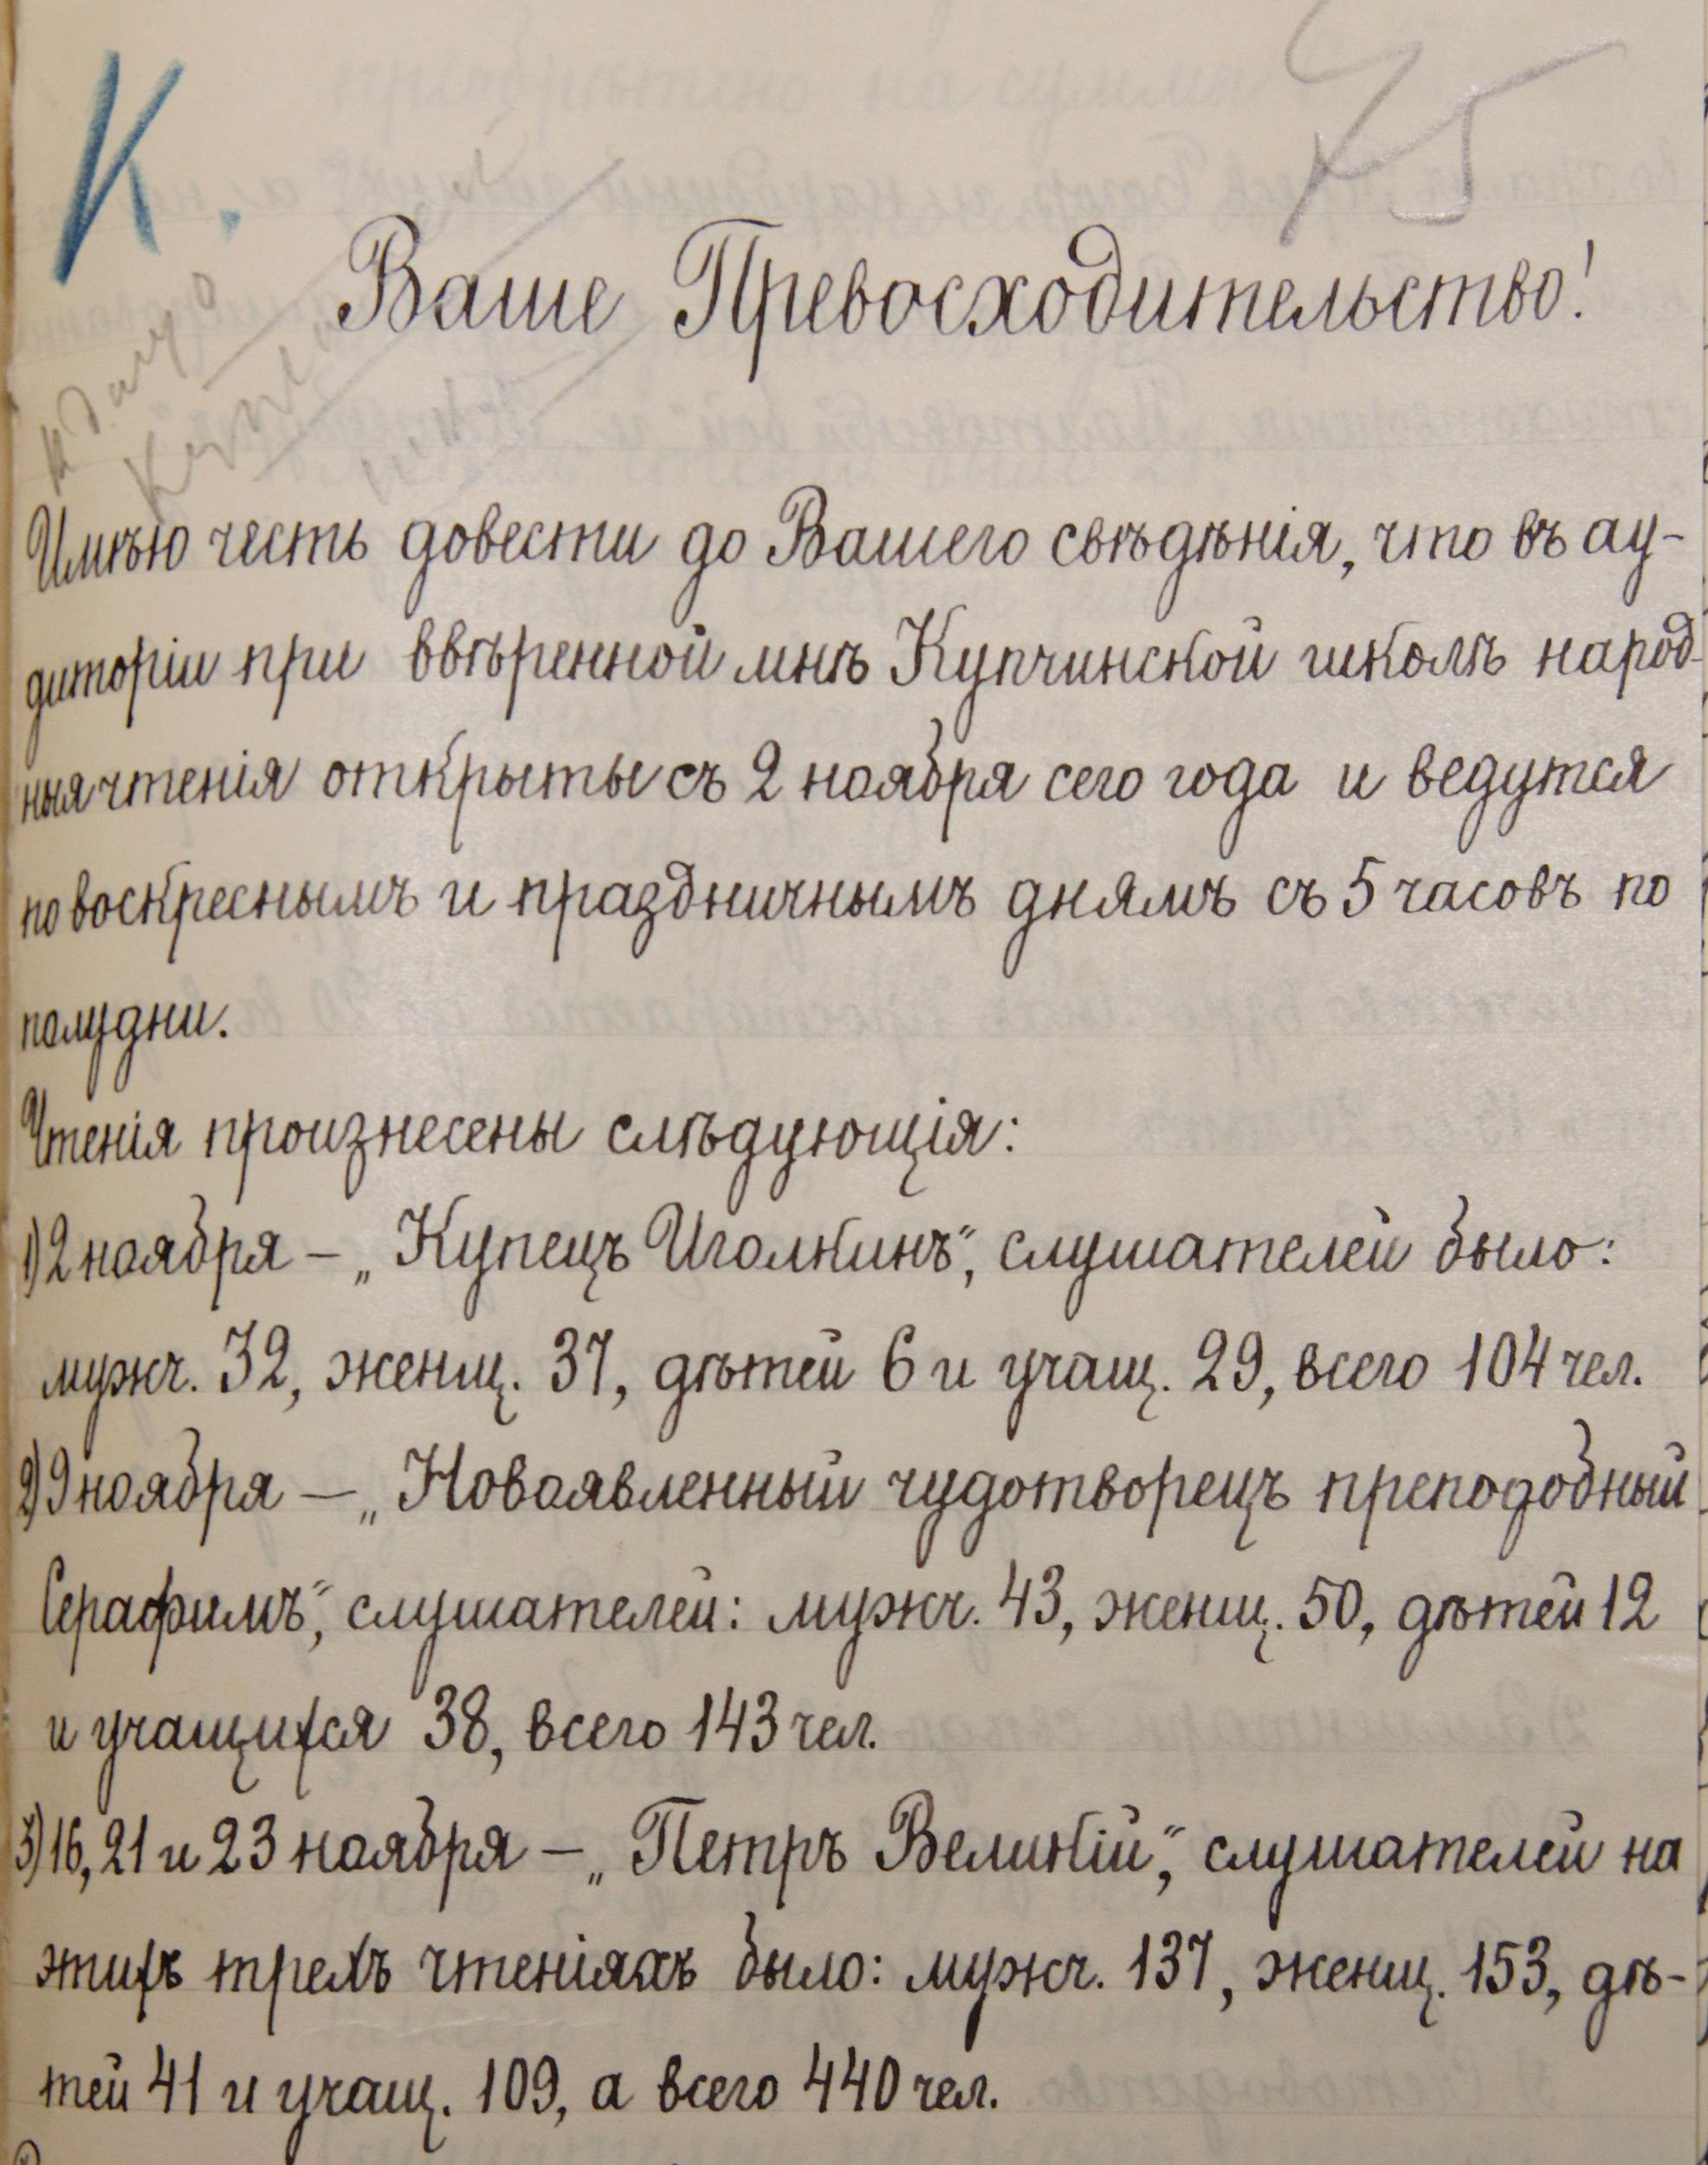 К.
45
Ваше Превосходительство!
Имѣю честь довести до Вашего свѣдѣнія, что въ ау-
диторіи при ввѣренной мнѣ Купчинской школѣ народ-
ныя чтенія открыты съ 2 ноября сего года и ведутся
по воскреснымъ и праздничнымъ днямъ съ 5 часовъ по
полудни.
Чтенія произнесены слѣдующія:
1) 2 ноября – „Купецъ Иголкинъ“, слушателей было:
мужч. 32, женщ. 37, дѣтей 6 и учащ. 29, всего 104 чел.
2) 9 ноября – „Новоявленный чудотворецъ преподобный
Серафимъ“, слушателей: мужч. 43, женщ. 50, дѣтей 12
и учащихся 38, всего 143 чел.
3) 16, 21 и 23 ноября – „Петръ Великій“, слушателей на
этихъ трехъ чтеніяхъ было: мужч. 137, женщ. 153, дѣ-
тей 41 и учащ. 109, а всего 440 чел.